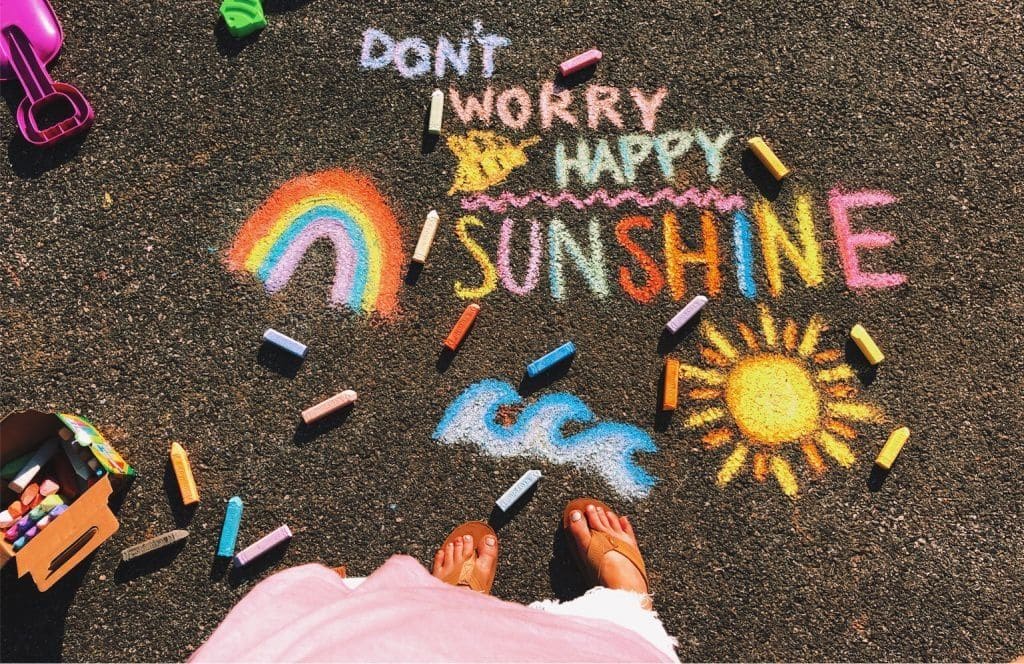 DON'T
WORRY
HAPPY
SUNSHINE